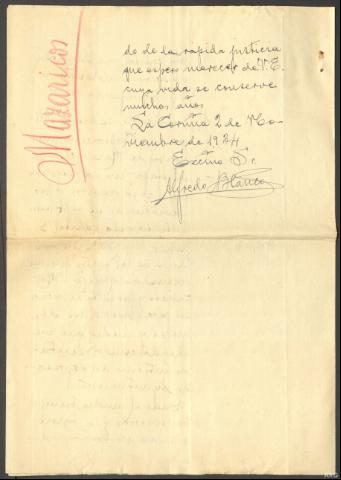 Mazaricos
do de la rapida justicia
que espera merecer de V.E.
cuya vida se conserve
muchos años
La Coruña 2 de No-
viembre de 1924
Excmo Sr.
Alfredo Blanco